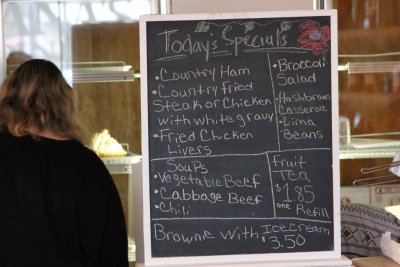 Today's Specials
•Country Ham
•Country Fried
Steak or Chicken
with white gravy
•Fried Chicken
Livers
•Broccoli
Salad
•Hashbrown
Casserole
•Lima
Beans
Soups
•Vegetable Beef
•Cabbage Beef
•Chili
Fruit
Tea
$1.85
one Refill
Brownie with Ice cream
$3.50